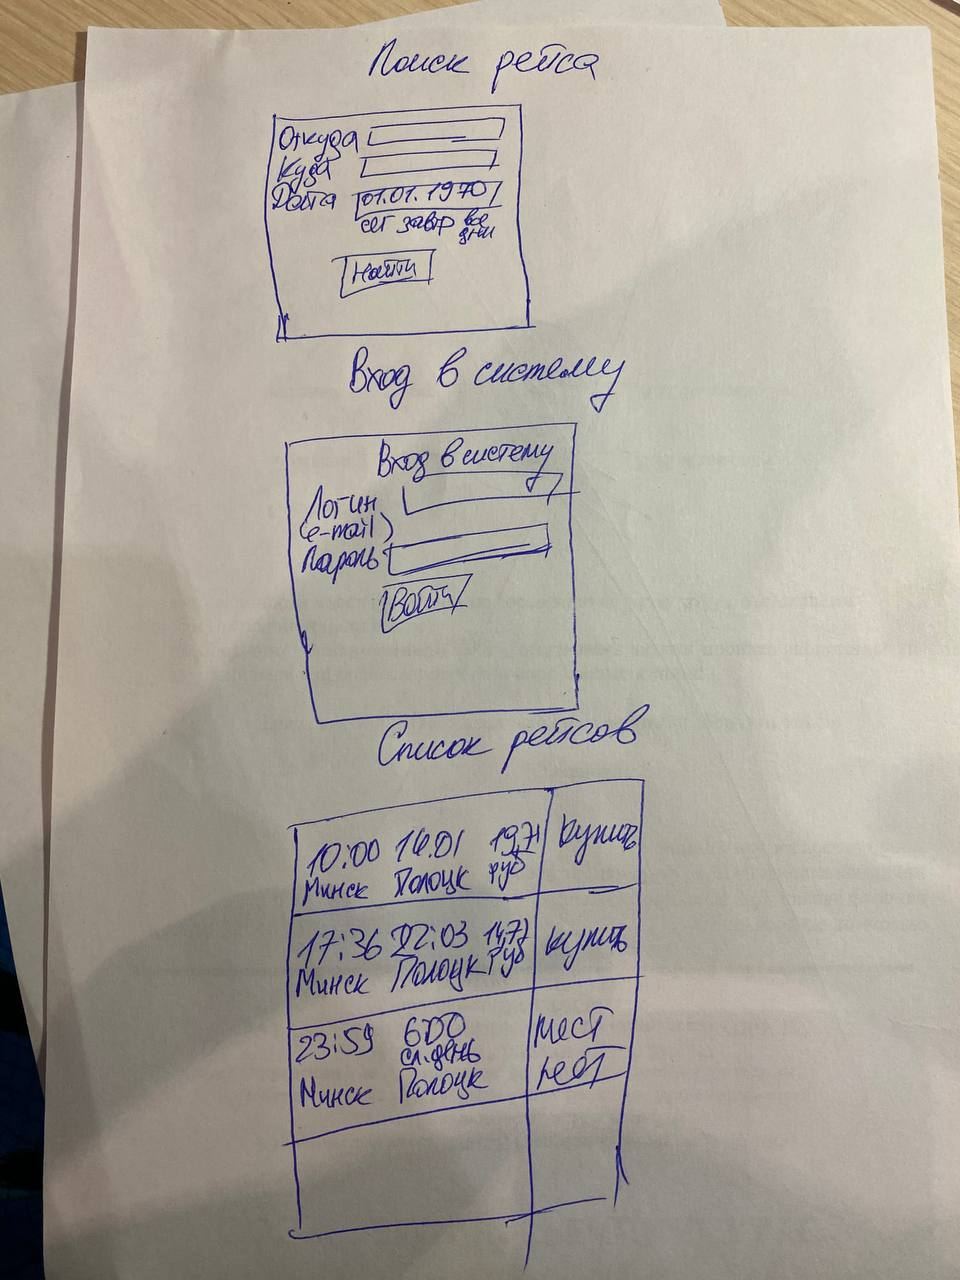 Поиск рейса
Откуда
Куда
Дата 01.01.1970
сег завтр все дни
Найти
Вход в систему
Вход в систему
Логин
(e-mail)
Пароль
Войти
Список рейсов
10:00 14:01 19,71 руб купить
Минск Полоцк
17:36 22:03 14,77 руб купить
Минск Полоцк
23:59 6:00 мест
сл.день
Минск Полоцк нет